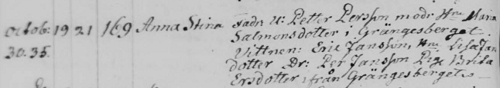 Octob: 19 21 169 Anna Stina Fadr U: Petter Persson modr Hu: Maria
30.35. Salmonsdotter i Grängesberget
Vittnen: Eric Jansson, Hu: Lisa Jan
dotter Dr: Per Jansson Pig: Brita
Ersdotter i från Grängesberget